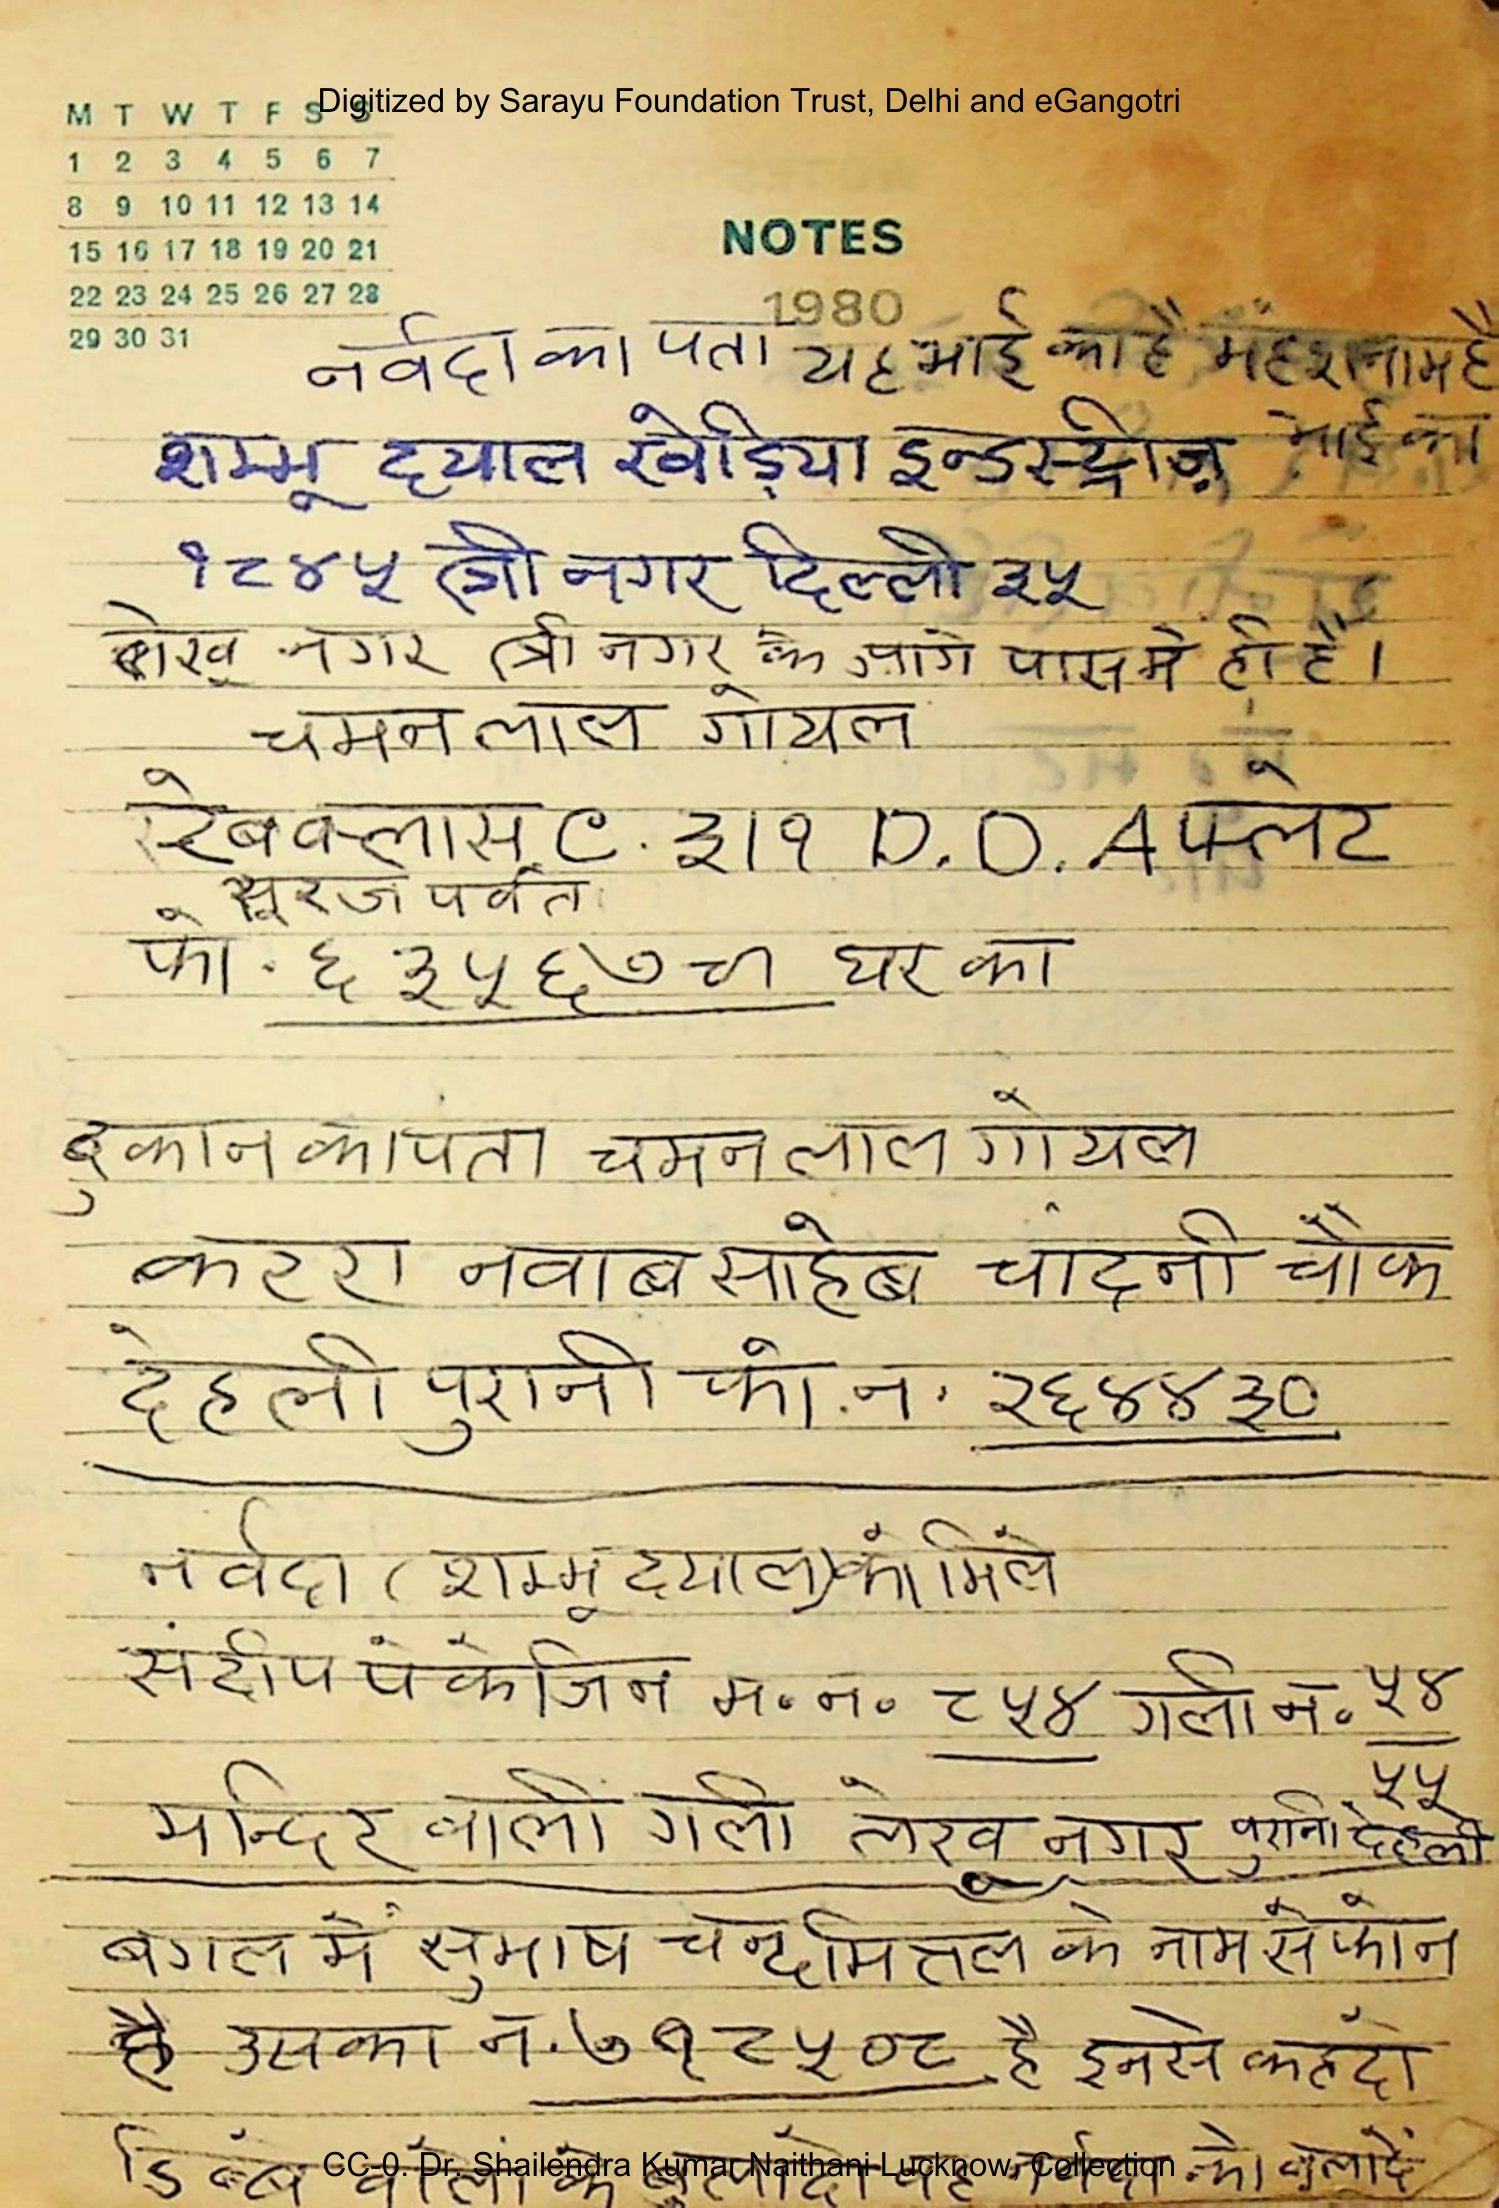 Digitized by Sarayu Foundation Trust, Delhi and eGangotri
M T W T F S S
1 2 3 4 5 6 7
8 9 10 11 12 13 14
15 16 17 18 19 20 21
22 23 24 25 26 27 28
29 30 31
NOTES
1980
नर्वदा का पता यह भाई का है महेश नाम है
शम्भू दयाल खेड़िया इन्डस्ट्रीज़ भाई का
१८४५ त्री नगर दिल्ली ३५
लेखू नगर त्री नगर के आगे पास में ही है।
चमन लाल गोयल
क्लास C. ३।१ D. D. A फ्लेट
सूरज पर्वत
फो. ६३५६७ घर का
दुकान का पता चमन लाल गोयल
कटरा नवाब साहेब चांदनी चौक
देहली पुरानी फो. न. २६४४३०
नर्वदा (शम्भू दयाल) को मिले
संदीप पंकेजिन म. न. ८५४ गली न. ५४
५५
मन्दिर वाली गली लेखू नगर पुरानी देहली
बगल में सुभाष चन्द्र मित्तल के नाम से फोन
है उसका न. ७१८५०८ है इनसे कहदो
डिब्बे वालों के बुलादो वह नर्वदा को बुलादें
CC-0. Dr. Shailendra Kumar Naithani Lucknow. Collection